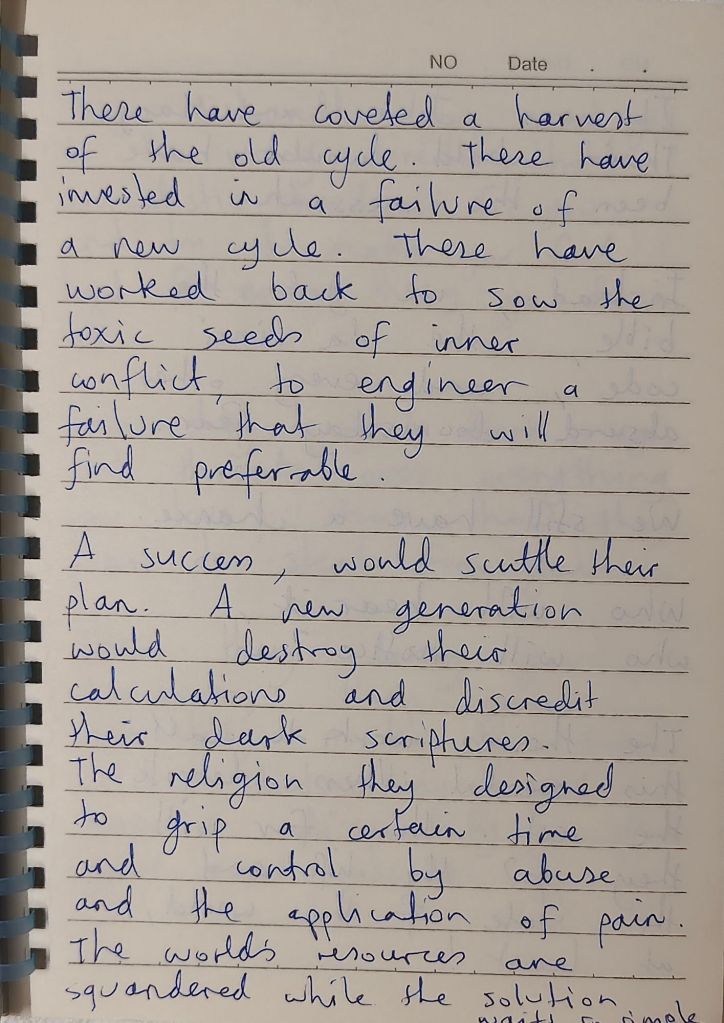 NO Date . .
There have coveted a harvest
of the old cycle. There have
invested in a failure of
a new cycle. There have
worked back to sow the
toxic seeds of inner
conflict, to engineer a
failure that they will
find preferrable.
A success, would scuttle their
plan. A new generation
would destroy their
calculations and discredit
their dark scriptures.
The religion they designed
to grip a certain time
and control by abuse
and the application of pain.
The world's resources are
squandered while the solution
waits simple